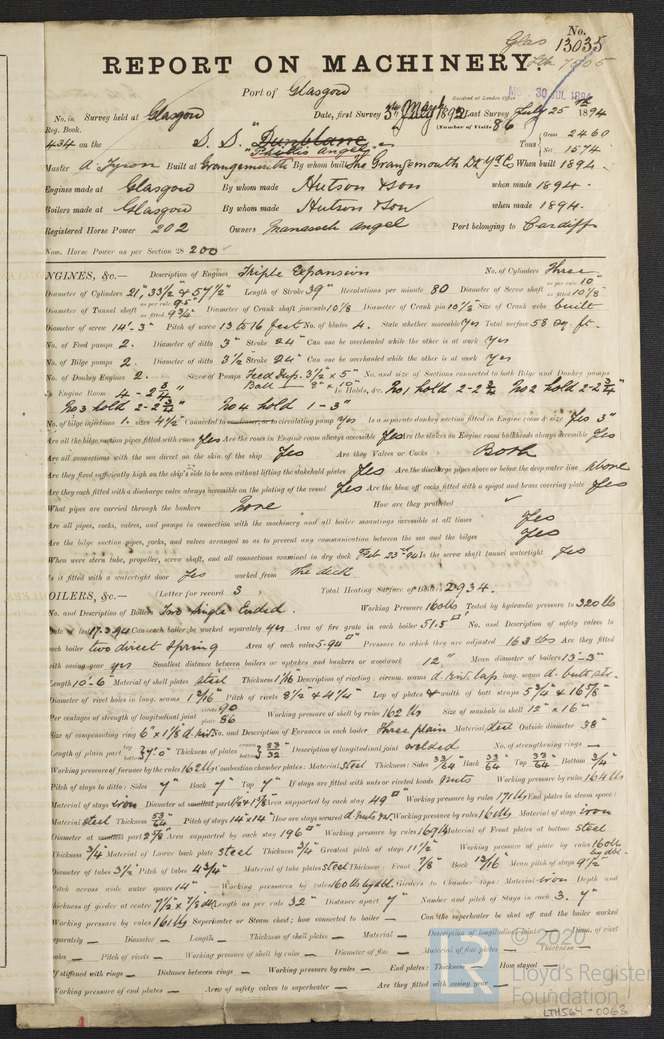 Glas
No. 13035
REPORT ON MACHINERY.
Port of Glasgow
Received at London Office 30 JUL 1894
No. in Survey held at Glasgow Date, first Survey Last Survey July 25th 1894
Reg. Book. (Number of Visits 86)
434 on the S. S. "Dunblane" "Phyllis Angel" Tons Gross 2460 Net 1574
Master A Tyson Built at Grangemouth By whom built The Grangemouth Dk Yd Co When built 1894
Engines made at Glasgow By whom made Hutson & Son when made 1894
Boilers made at Glasgow By whom made Hutson & Son when made 1894.
Registered Horse Power 202 Owners Manasseh Angel Port belonging to Cardiff
Nom. Horse Power as per Section 28 200
NGINES, &c.— Description of Engines Triple Expansion No. of Cylinders Three
Diameter of Cylinders 21", 33½" & 57½" Length of Stroke 39" Revolutions per minute 80 Diameter of Screw shaft as per rule 10 as fitted 10⅛
Diameter of Tunnel shaft as per rule 9.5" as fitted 9¾" Diameter of Crank shaft journals 10⅛ Diameter of Crank pin 10⅛ Size of Crank webs built
Diameter of screw 14'-3" Pitch of screw 13 to 16 feet No. of blades 4. State whether moveable Yes Total surface 58 sq. ft.
No. of Feed pumps 2. Diameter of ditto 3" Stroke 24" Can one be overhauled while the other is at work Yes
No. of Bilge pumps 2. Diameter of ditto 3½ Stroke 24" Can one be overhauled while the other is at work Yes
No. of Donkey Engines 2. Sizes of Pumps Feed Dup. 3½ x 5" Ball — 8" x 10" No. and size of Suctions connected to both Bilge and Donkey pumps
In Engine Room 4 - 2¾" In Holds, &c. No 1 hold 2-2¾ No 2 hold 2-2¾"
No 3 hold 2-2¾" No 4 hold 1-3"
No. of bilge injections 1. sizes 4½" Connected to condenser, or to circulating pump Yes Is a separate donkey suction fitted in Engine room & size Yes 3"
Are all the bilge suction pipes fitted with roses Yes Are the roses in Engine room always accessible Yes Are the sluices on Engine room bulkheads always accessible Yes
Are all connections with the sea direct on the skin of the ship Yes Are they Valves or Cocks Both
Are they fixed sufficiently high on the ship's side to be seen without lifting the stokehold plates Yes Are the discharge pipes above or below the deep water line above
Are they each fitted with a discharge valve always accessible on the plating of the vessel Yes Are the blow off cocks fitted with a spigot and brass covering plate Yes
What pipes are carried through the bunkers None How are they protected
Are all pipes, cocks, valves, and pumps in connection with the machinery and all boiler mountings accessible at all times Yes
Are the bilge suction pipes, cocks, and valves arranged so as to prevent any communication between the sea and the bilges Yes
When were stern tube, propeller, screw shaft, and all connections examined in dry dock Feb 23rd 94 Is the screw shaft tunnel watertight Yes
Is it fitted with a watertight door Yes worked from The deck
OILERS, &c.— (Letter for record 3) Total Heating Surface of Boilers 2934.
No. and Description of Boilers Two Single Ended. Working Pressure 160 lbs Tested by hydraulic pressure to 320 lbs
Date of test 17.3.94 Can each boiler be worked separately yes Area of fire grate in each boiler 51.5 No. and Description of safety valves to
each boiler two direct spring Area of each valve 5.94 Pressure to which they are adjusted 163 lbs Are they fitted
with easing gear yes Smallest distance between boilers or uptakes and bunkers or woodwork 12" Mean diameter of boilers 13'-3"
Length 10'-6" Material of shell plates steel Thickness 1 1/16 Description of riveting: circum. seams d. riv. lap long. seams d. butt str.
Diameter of rivet holes in long. seams 1 3/16" Pitch of rivets 8½ & 4¼" Lap of plates or width of butt straps
Per centages of strength of longitudinal joint rivets 90 plate 86 Working pressure of shell by rules 162 lbs Size of manhole in shell 12" x 16"
Size of compensating ring No. and Description of Furnaces in each boiler three plain Material steel Outside diameter 38"
Length of plain part 7'.0" Thickness of plates 33/32 Description of longitudinal joint welded No. of strengthening rings —
Working pressure of furnace by the rules 162 lbs Combustion chamber plates: Material steel Thickness: Sides 33/64" Back 33/64 Top 33/64 Bottom ¾"
Pitch of stays to ditto: Sides 7" Back 7" Top 7" If stays are fitted with nuts or riveted heads nuts Working pressure by rules 164 lbs
Material of stays iron Diameter at smallest part Area supported by each stay 49 Working pressure by rules 171 lbs End plates in steam space:
Material steel Thickness 53/64 Pitch of stays 14 x 14" How are stays secured d. nuts Working pressure by rules 161 lbs Material of stays iron
Diameter at smallest part 2⅞ Area supported by each stay 196 Working pressure by rules 169 lbs Material of Front plates at bottom steel
Thickness ¾ Material of Lower back plate steel Thickness ¾ Greatest pitch of stays 11½ Working pressure of plate by rules 160 lbs
Diameter of tubes 3½ Pitch of tubes 4¾" Material of tube plates steel Thickness: Front ⅞" Back 13/16 Mean pitch of stays 9½
Pitch across wide water spaces 14" Working pressures by rules 160 lbs Girders to Chamber tops: Material iron Depth and
thickness of girder at centre 7½ x ⅞ Length as per rule 32" Distance apart 7" Number and pitch of Stays in each 3. 7"
Working pressure by rules 161 lbs Superheater or Steam chest; how connected to boiler — Can the superheater be shut off and the boiler worked
separately — Diameter — Length — Thickness of shell plates — Material — Description of longitudinal joint — Diam. of rivet
holes — Pitch of rivets — Working pressure of shell by rules — Diameter of flue — Material of flue plates — Thickness —
If stiffened with rings — Distance between rings — Working pressure by rules — End plates: Thickness — How stayed —
Working pressure of end plates — Area of safety valves to superheater — Are they fitted with easing gear —
© 2020
Lloyd's Register
Foundation
LTH564-0063